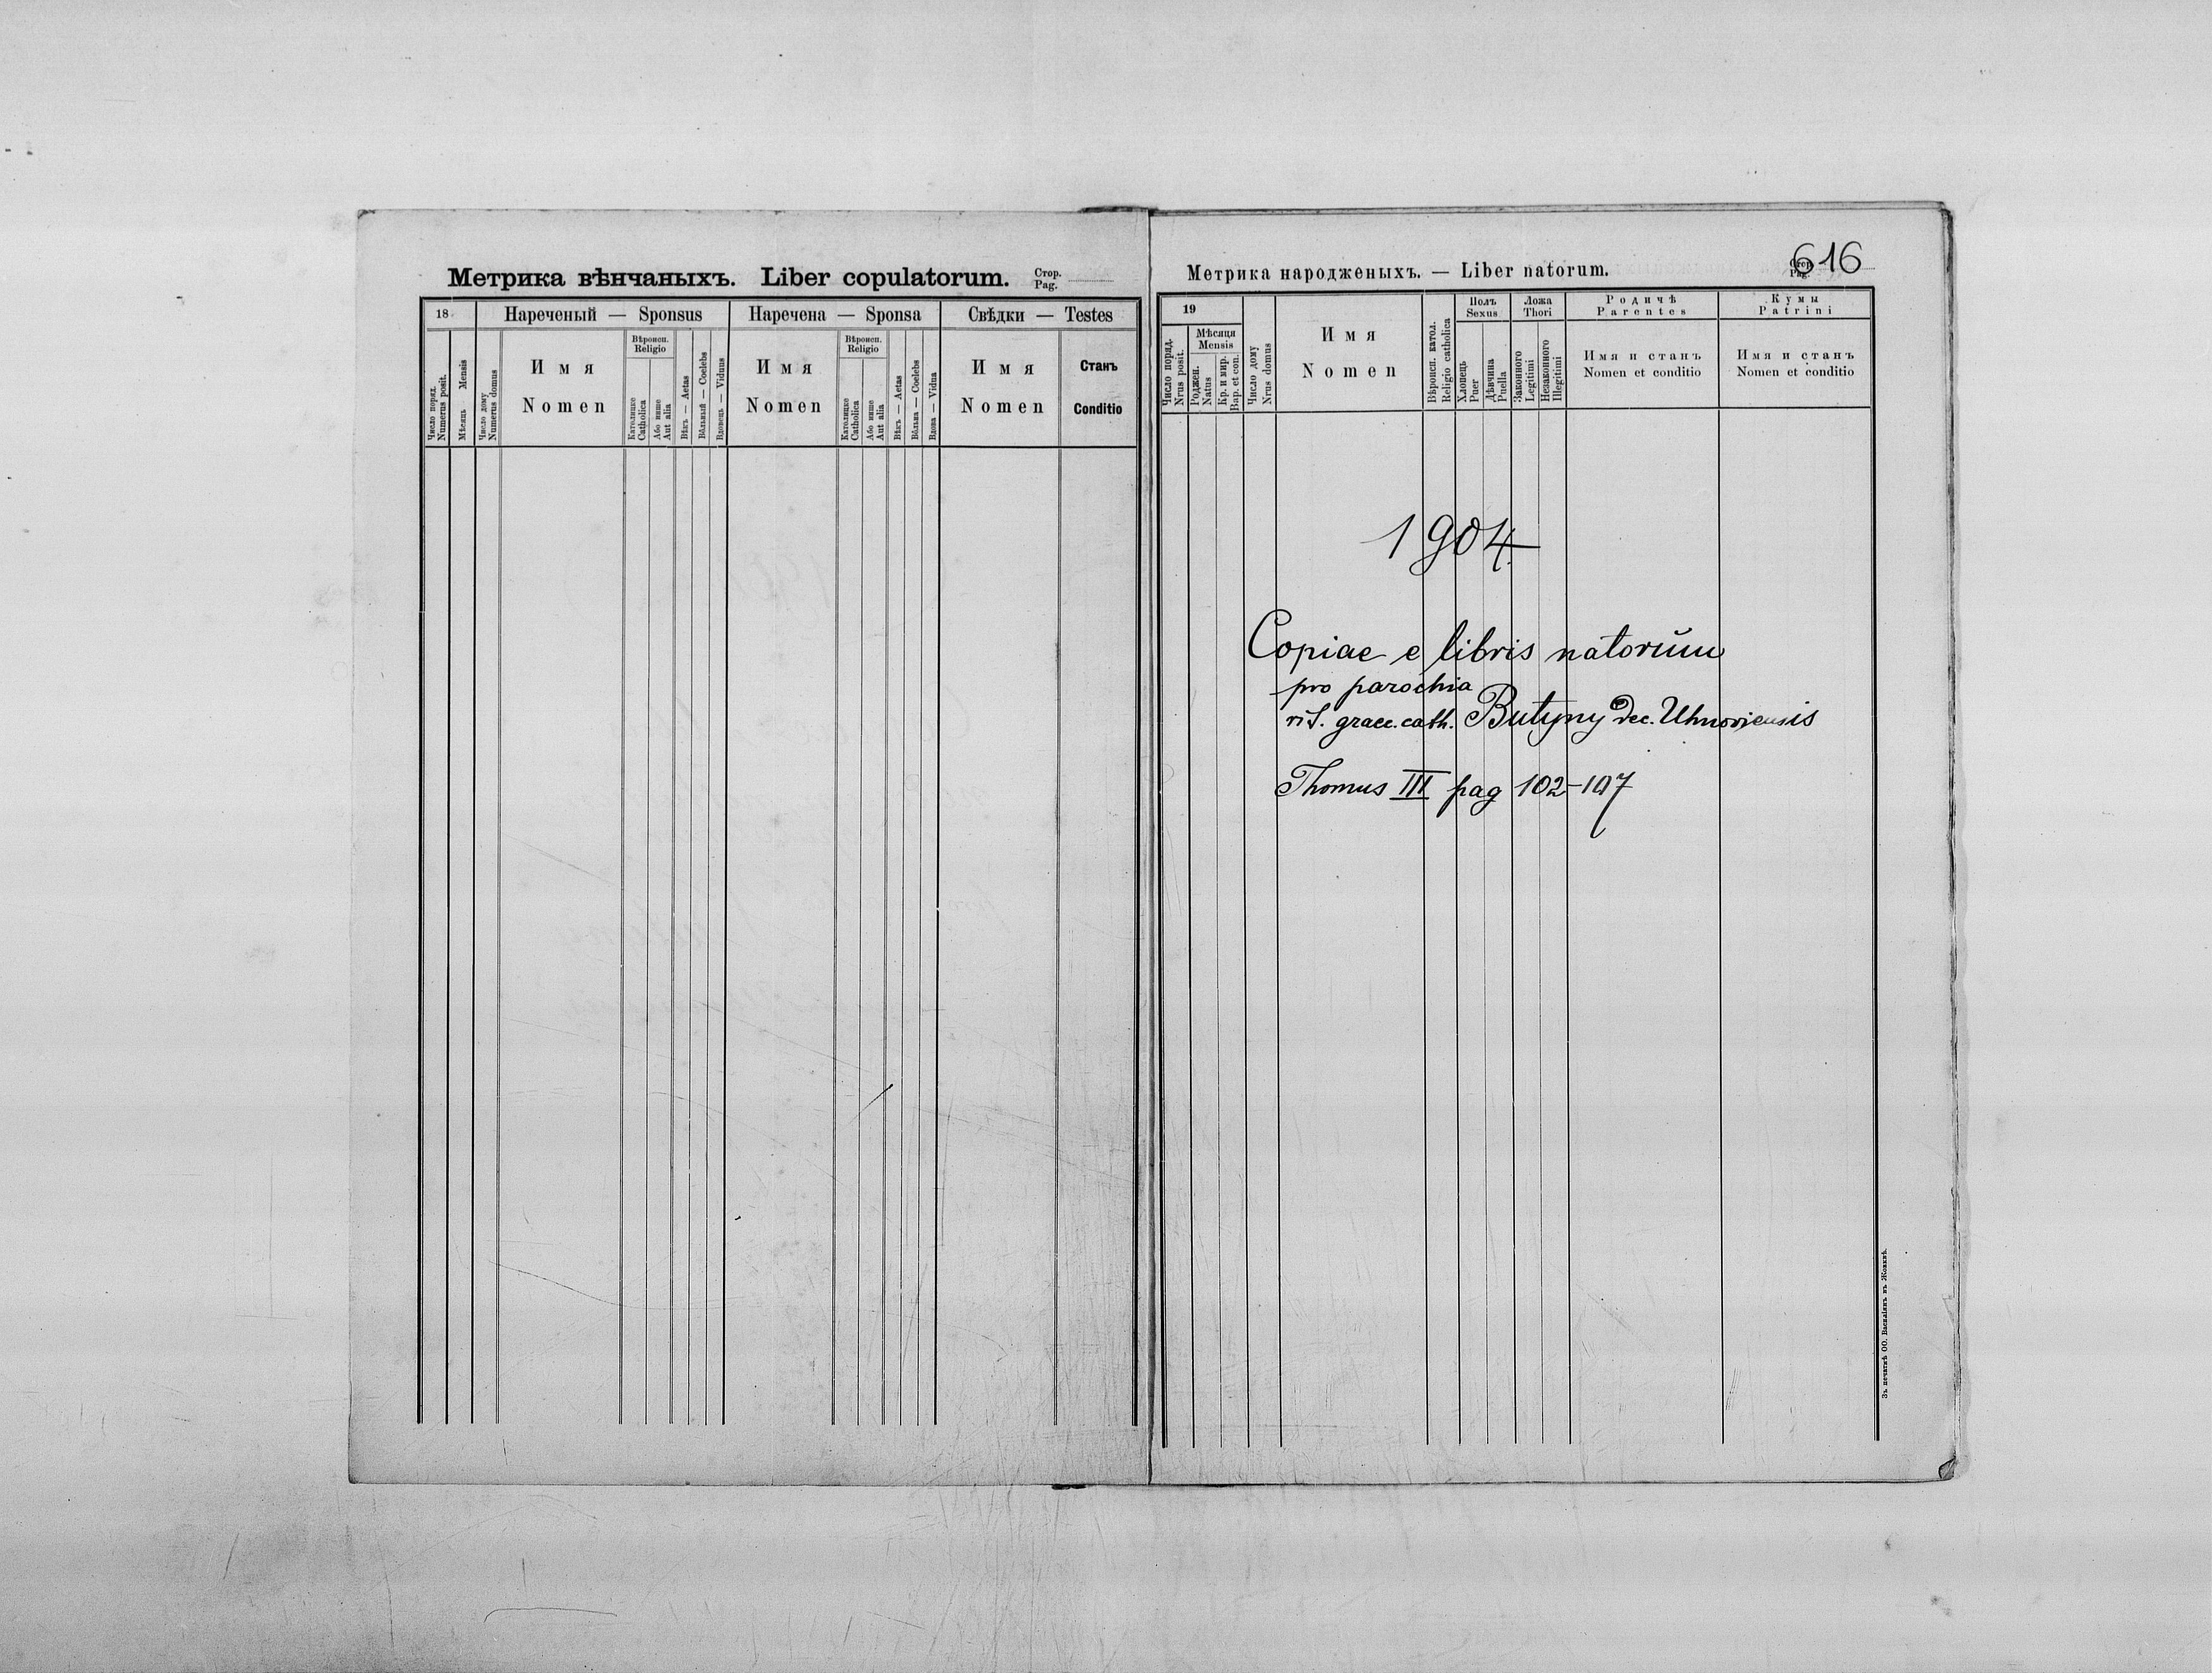 Метрика вѣнчаныхъ. Liber copulatorum. Стор. Pag.
18
Нареченый — Sponsus
Наречена — Sponsa
Свѣдки — Testes
Число поряд. Numerus posit.
Мѣсяць Mensis
Число дому Numerus domus
Имя
Nomen
Вѣроисп. Religio
Католицке Catholica
Або инше Aut alia
Вѣкъ — Aetas
Вôльный — Coelebs
Вдовець — Viduus
Имя
Nomen
Вѣроисп. Religio
Католицке Catholica
Або инше Aut alia
Вѣкъ — Aetas
Вôльна — Coelebs
Вдова — Vidua
Имя
Nomen
Станъ
Conditio
Метрика народженыхъ. — Liber natorum.
Стор. Pag. 616
19
Число поряд. Nrus posit.
Мѣсяця Mensis
Роджен. Natus
Кр. и мир. Bap. et con.
Число дому Nrus domus
Имя
Nomen
Вѣроисп. катол. Religio catholica
Полъ Sexus
Хлопець Puer
Дѣвчина Puella
Ложа Thori
Законного Legitimi
Незаконного Illegitimi
Родичѣ
Parentes
Имя и станъ
Nomen et conditio
Кумы
Patrini
Имя и станъ
Nomen et conditio
1904.
Copiae e libris natorŭm
pro parochia
rit. graec. cath. Butyny Dec. Uhnoviensis
Thomus III pag 102-107
Зъ печатнѣ ОО. Василіянъ въ Жовквѣ.